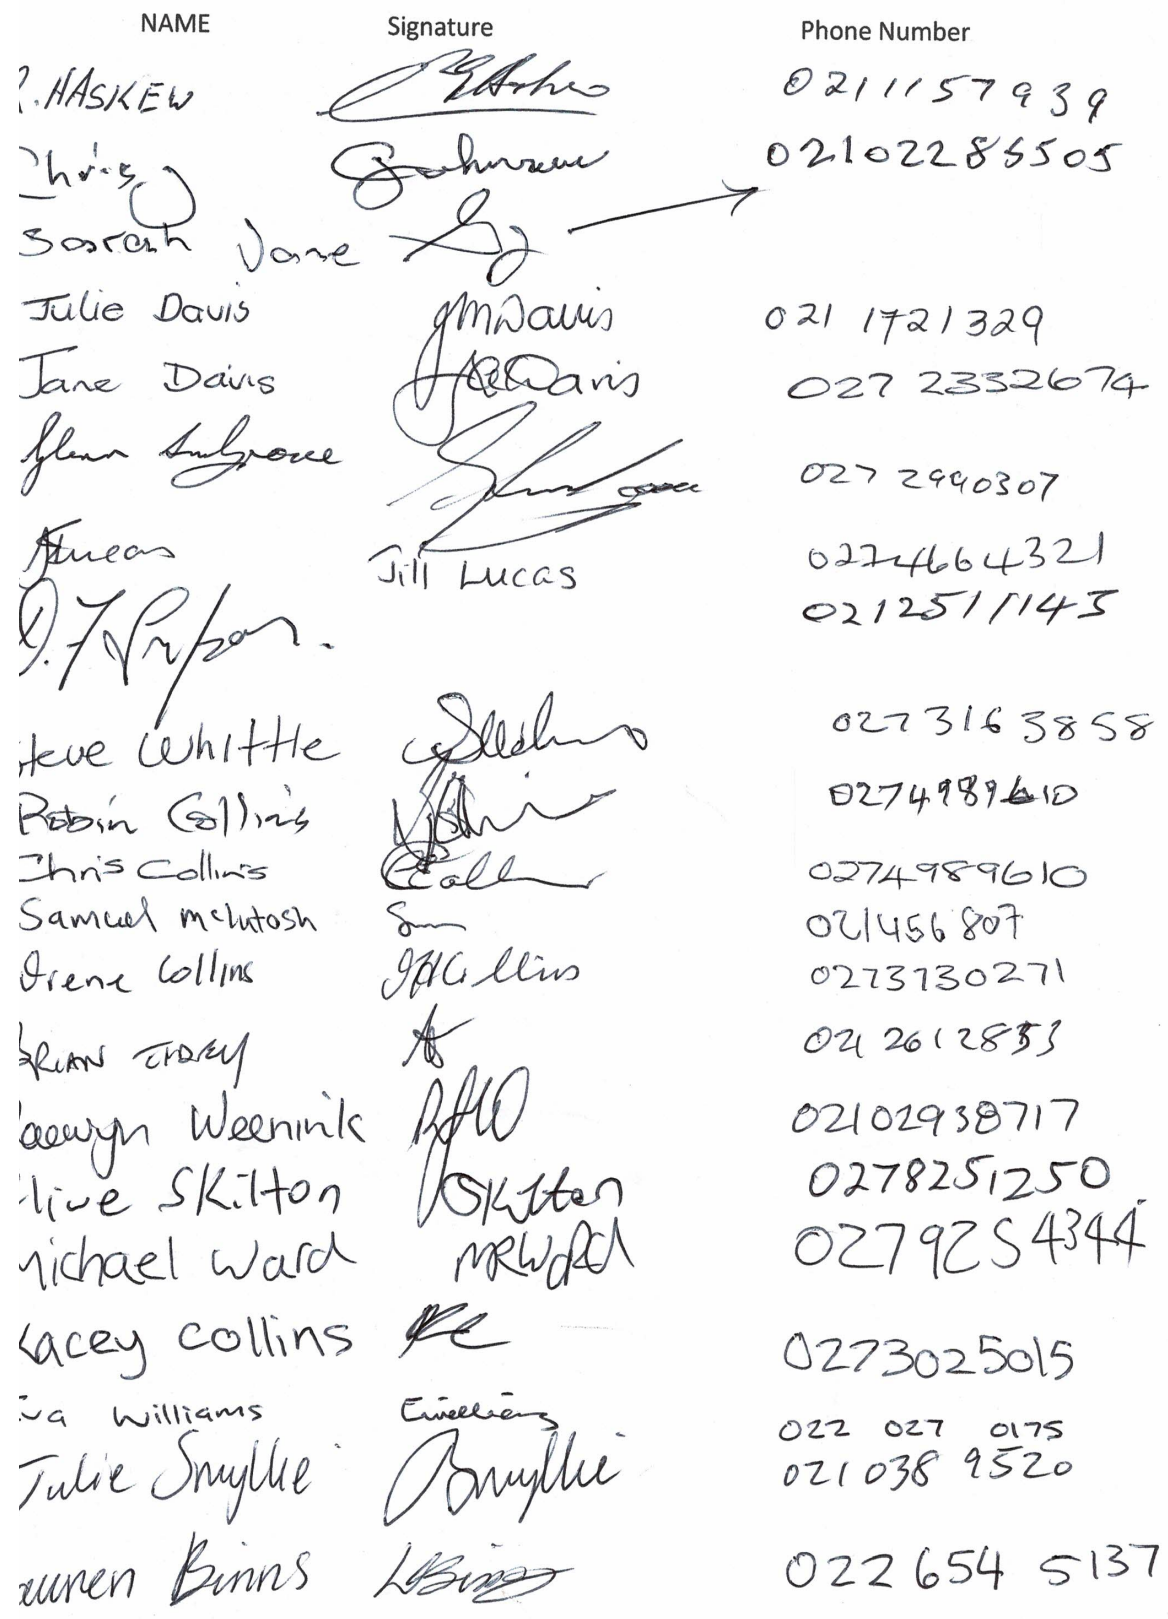 NAME Signature Phone Number
. HASKEW 0211157939
Chris J 02102286505
Sarah Jane
Julie Davis JMDavis 021 1721329
Jane Davis Davis 027 2332674
Glenn 027 2990307
Jill Lucas 0274664321
0212511143
teve Whittle 0273163858
Robin Collins 0274989610
Chris Collins 0274989610
Samuel McIntosh 021456807
Irene Collins IHCollins 0273730271
BRIAN 021 2612853
aewyn Weenink RJW 02102938717
live Skilton Skilton 0278251250
Michael Ward MRWard 0279254344
Kacey Collins KC 0273025015
va Williams EWilliams 022 027 0175
Julie Smyllie Smyllie 021 038 9520
auren Binns LBinns 022 654 5137